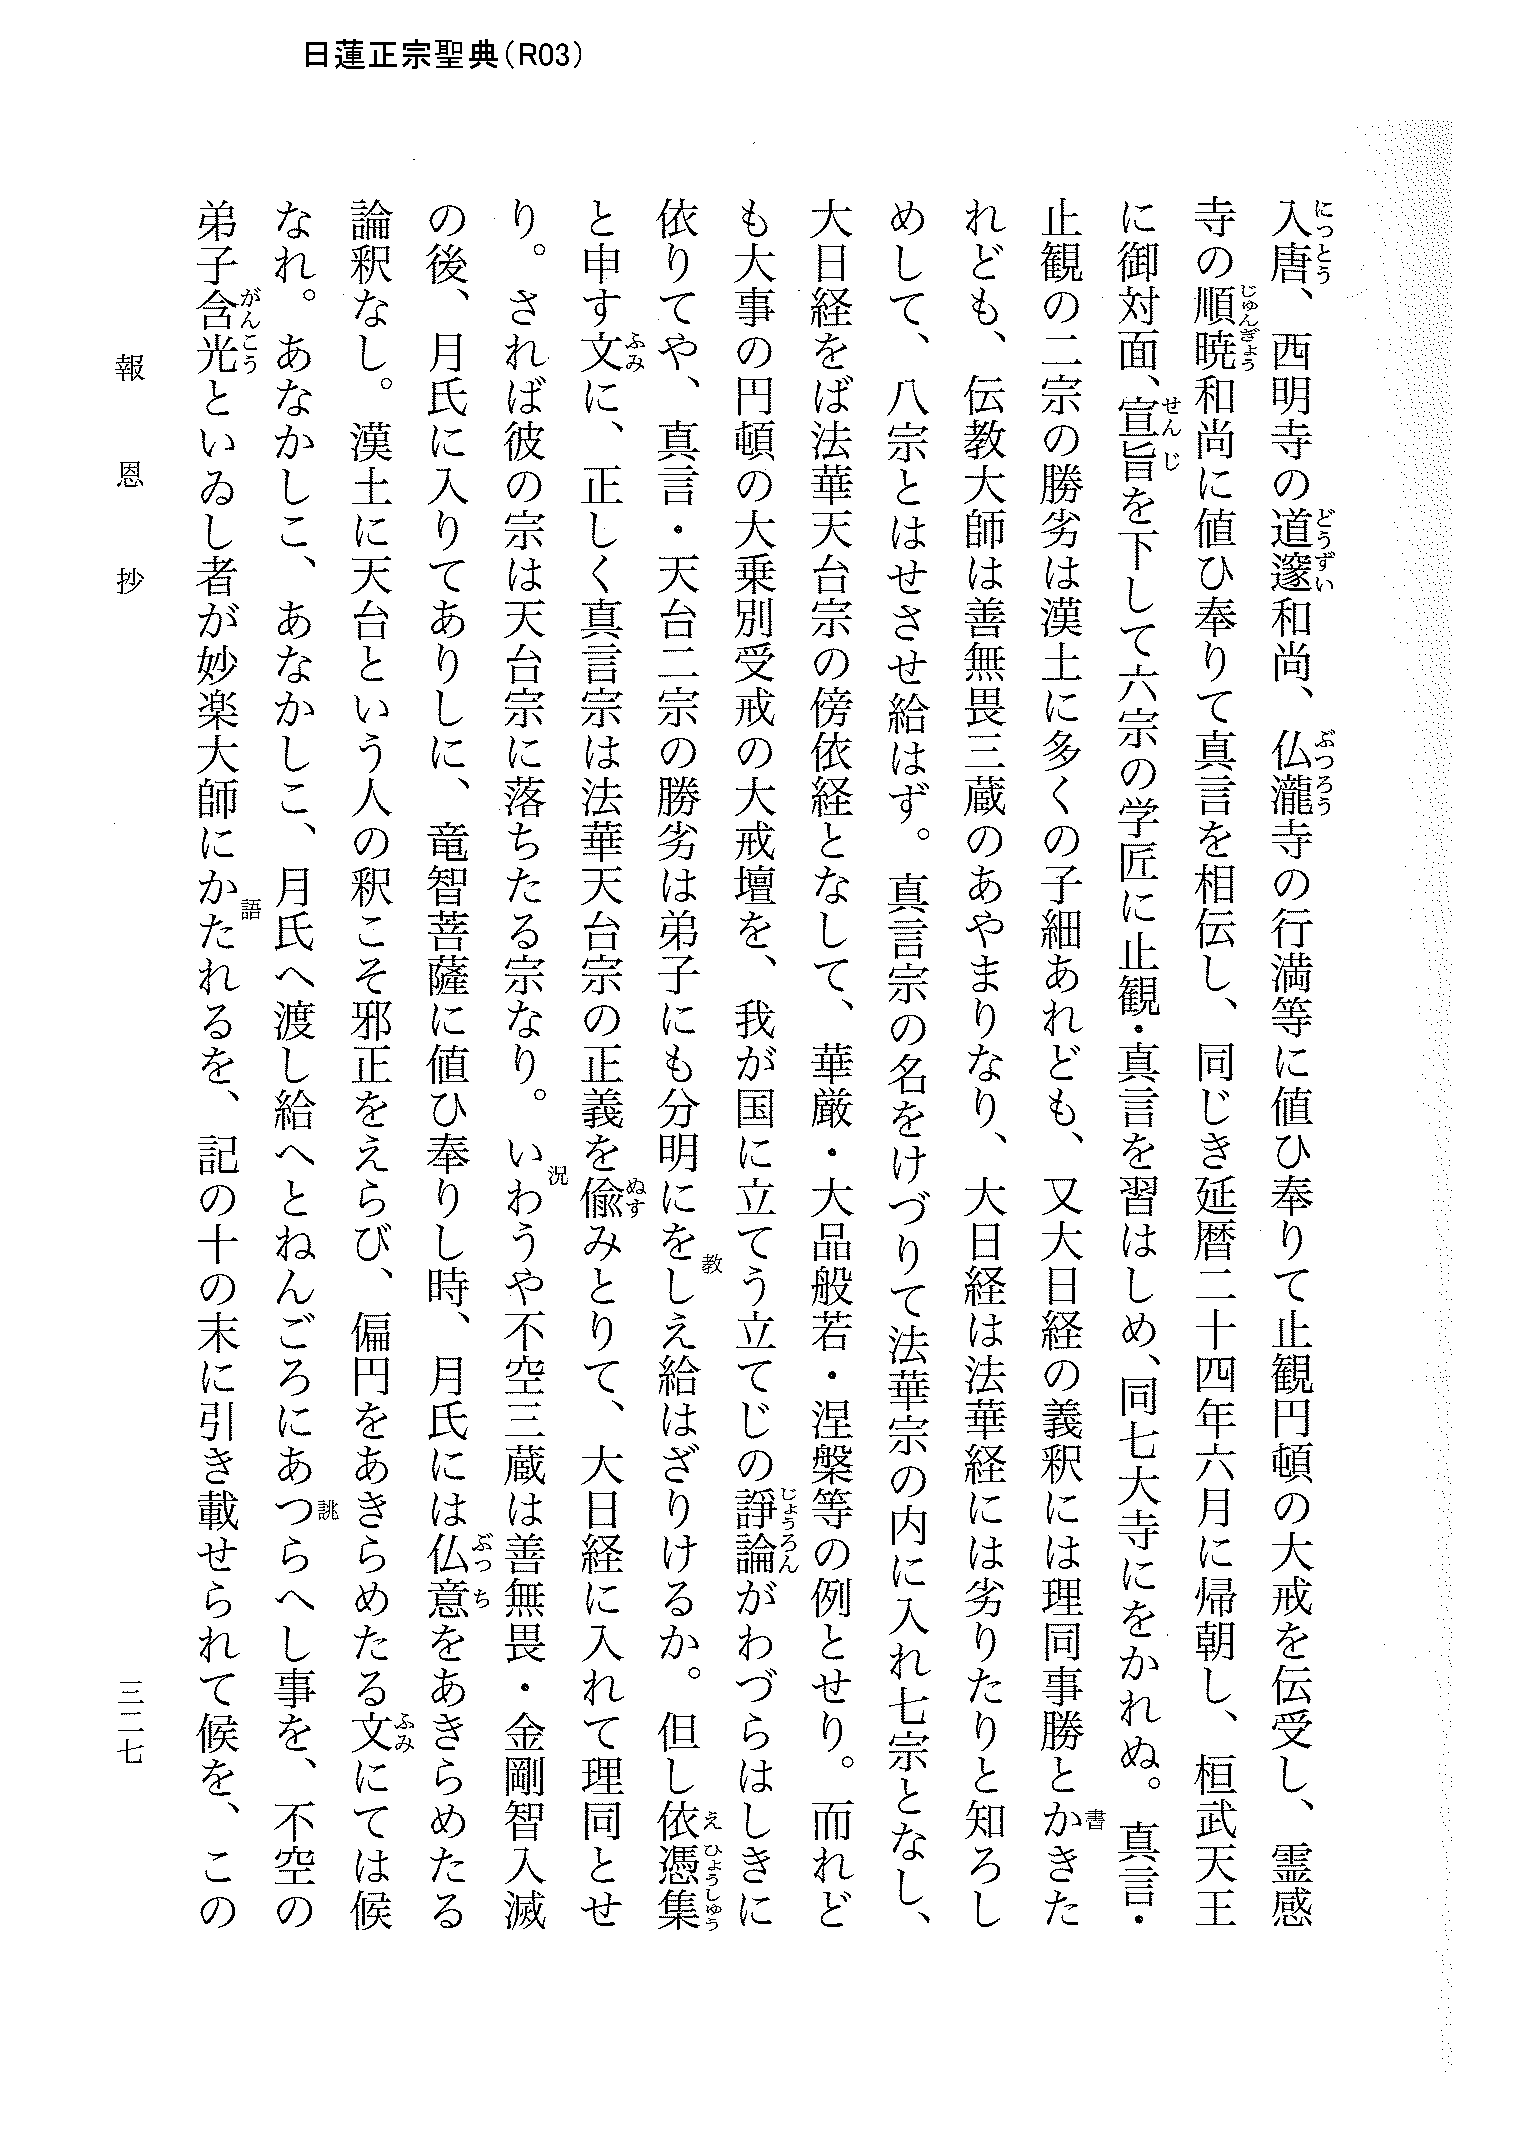 日蓮正宗聖典（R03）
入唐、西明寺の道邃和尚、仏瀧寺の行満等に値ひ奉りて止観円頓の大戒を伝受し、霊感
寺の順暁和尚に値ひ奉りて真言を相伝し、同じき延暦二十四年六月に帰朝し、桓武天王
に御対面、宣旨を下して六宗の学匠に止観・真言を習はしめ、同七大寺にをかれぬ。真言・
止観の二宗の勝劣は漢土に多くの子細あれども、又大日経の義釈には理同事勝とかきた
れども、伝教大師は善無畏三蔵のあやまりなり、大日経は法華経には劣りたりと知ろし
めして、八宗とはせさせ給はず。真言宗の名をけづりて法華宗の内に入れ七宗となし、
大日経をば法華天台宗の傍依経となして、華厳・大品般若・涅槃等の例とせり。而れど
も大事の円頓の大乗別受戒の大戒壇を、我が国に立てう立てじの諍論がわづらはしきに
依りてや、真言・天台二宗の勝劣は弟子にも分明にをしえ給はざりけるか。但し依憑集
と申す文に、正しく真言宗は法華天台宗の正義を偸みとりて、大日経に入れて理同とせ
り。されば彼の宗は天台宗に落ちたる宗なり。いわうや不空三蔵は善無畏・金剛智入滅
の後、月氏に入りてありしに、竜智菩薩に値ひ奉りし時、月氏には仏意をあきらめたる
論釈なし。漢土に天台という人の釈こそ邪正をえらび、偏円をあきらめたる文にては候
なれ。あなかしこ、あなかしこ、月氏へ渡し給へとねんごろにあつらへし事を、不空の
弟子含光といゐし者が妙楽大師にかたれるを、記の十の末に引き載せられて候を、この
報恩抄
三二七